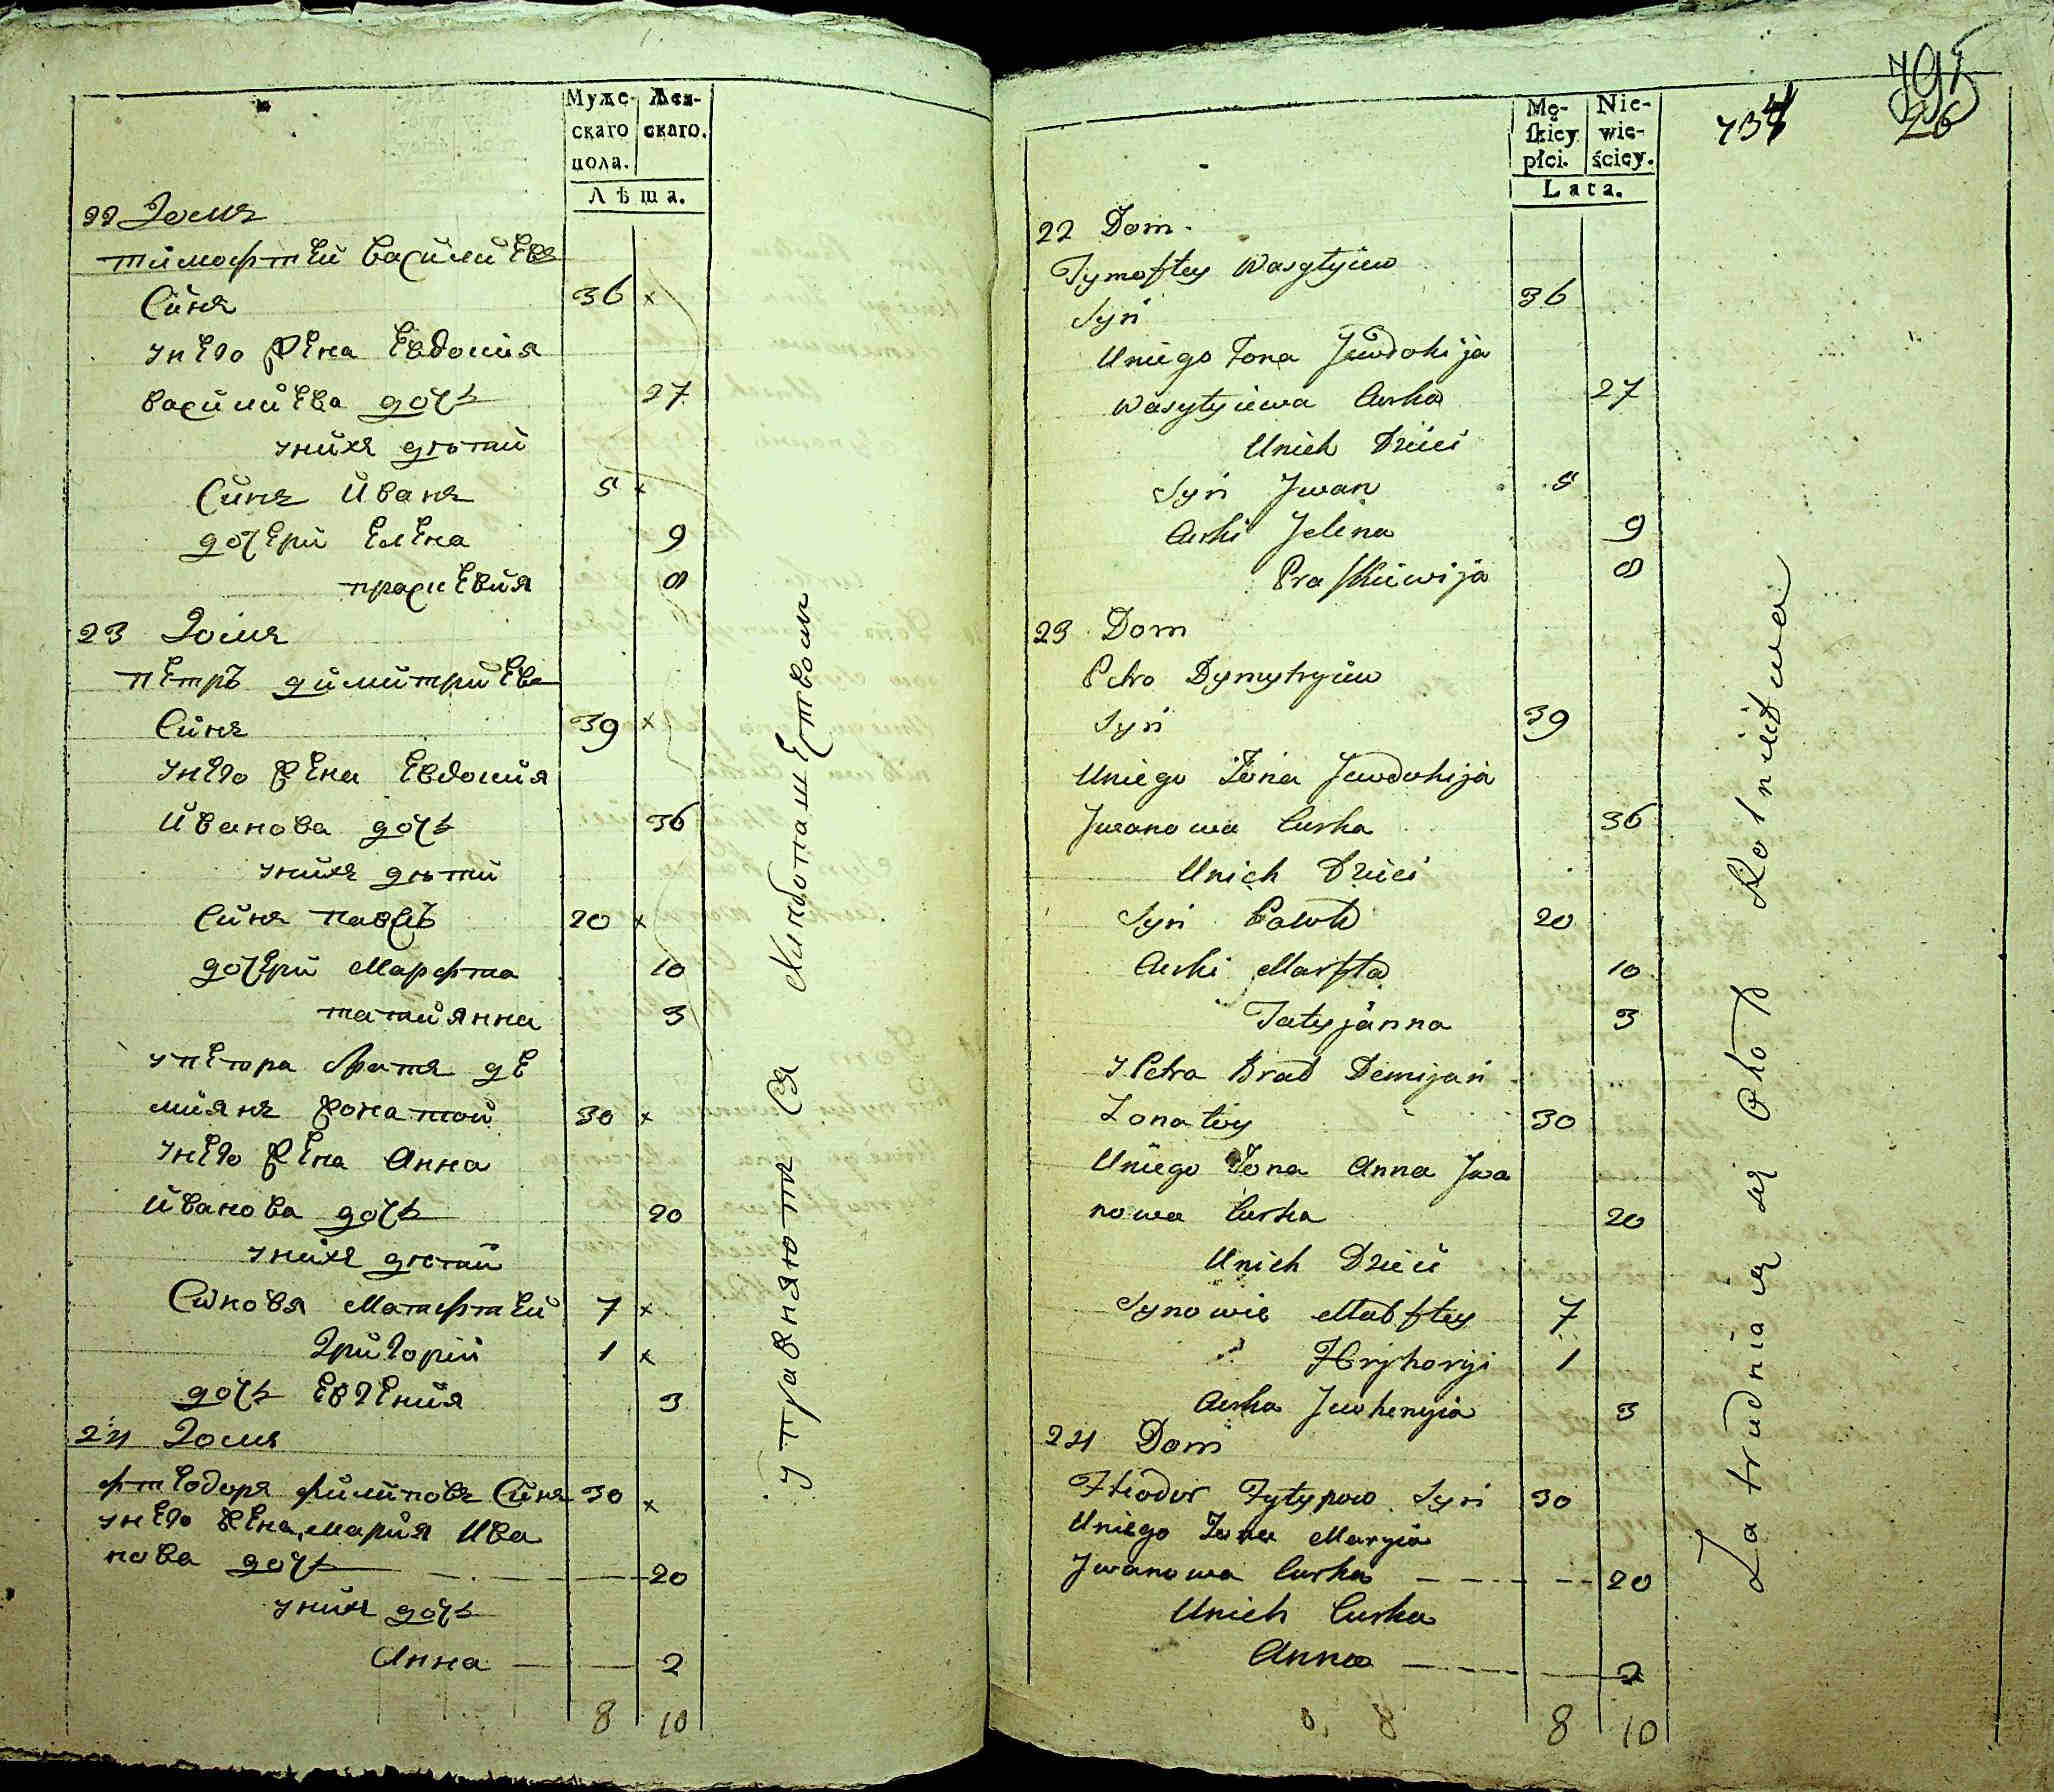 Муже- Жен-
скаго скаго.
пола.
Лѣта.
22 Домъ
тимофтей василиевъ
Синъ 36 x
унего жена Евдокия
василиева дочь 27
унихъ дѣти
Синъ Иванъ 5 x
дочери Елена 9
прасковия 8
23 Домъ
петръ димитриевъ
Синъ 39 x
унего жена Евдокия
Иванова дочь 36
унихъ дѣти
Синъ павелъ 20 x
дочери Марфта 10
татиянна 3
упетра братъ де
миянъ жонатой 30 x
унего жена Анна
Иванова дочь 20
унихъ дѣти
Синовя Матфтей 7 x
Григорий 1 x
дочь Евгения 3
24 Домъ
фтеодоръ филиповъ Синъ 30 x
унего жена мария Ива
нова дочь 20
унихъ дочь
Анна 2
8 10
упражняются
Mę- Nie-
skiey wie-
płci. ściey.
Lata.
734
26
22 Dom.
Tymoftey Wasylyiew
Syn 36
Uniego Żona Jewdokija
Wasylyiewa Curka 27
Unich Dzieci
Syn Jwan 5
Curki Jelena 9
Praskiewija 8
23 Dom
Petro Dymytryiew
Syn 39
Uniego Żona Jewdokija
Jwanowa Curka 36
Unich Dzieci
Syn Pawło 20
Curki Marfta 10
Tatyjanna 3
Y Petra Brat Demijan
Żonatey 30
Uniego Żona Anna Jwa
nowa Curka 20
Unich Dzieci
Synowie Matftey 7
Hryhoryi 1
Curka Jewhenyia 3
24 Dom
Fteodor Fylypow Syn 30
Uniego Żona Maryia
Jwanowa Curka 20
Unich Curka
Anna 2
8 8 10
Zatrudniaią się Około Rolnictwa